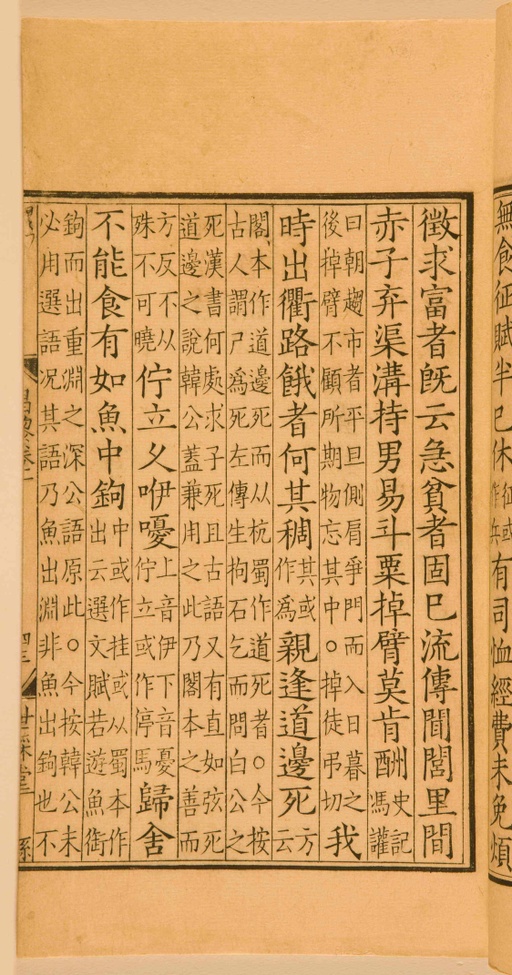 無食征賦半巳休征或作兵有司恤經費未免煩
徵求富者旣云急貧者固巳流傳聞閭里間
赤子弃渠溝持男易斗粟掉臂莫肯酬史記馮讙
曰朝趨市者平旦側肩爭門而入日暮之
後掉臂不顧所期物忘其中○掉徒弔切我
時出衢路餓者何其稠其或作爲親逢道邊死方云
閣本作道邊死而从杭蜀作道死者○今按
古人謂尸爲死左傳生拘石乞而問白公之
死漢書何處求子死且古語又有直如弦死
道邊之說韓公蓋兼用之此乃閣本之善而
方反不从殊不可曉佇立久咿嚘上音伊下音憂佇立或作停馬歸舍
不能食有如魚中鉤中或作挂或从蜀本作出云選文賦若遊魚銜
鉤而出重淵之深公語原此○今按韓公未
必用選語况其語乃魚出淵非魚出鉤也不